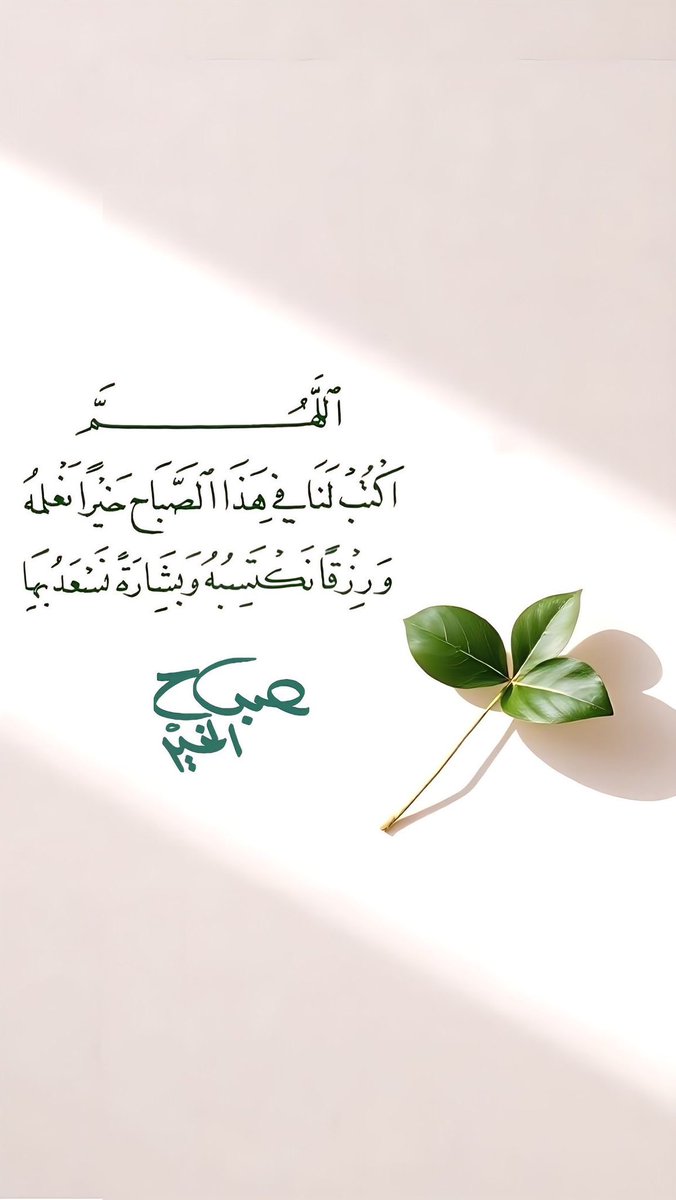 ٱللَّهُمَّ
اكْتُبْ لَنَا فِي هَذَا ٱلصَّبَاح خَيْرًا نَغْلمهُ
وَرِزْقًا نَكْتَسِبُهُ وَبَشِارَةً نَسْعَدُ بِهَا
صباح
الخير